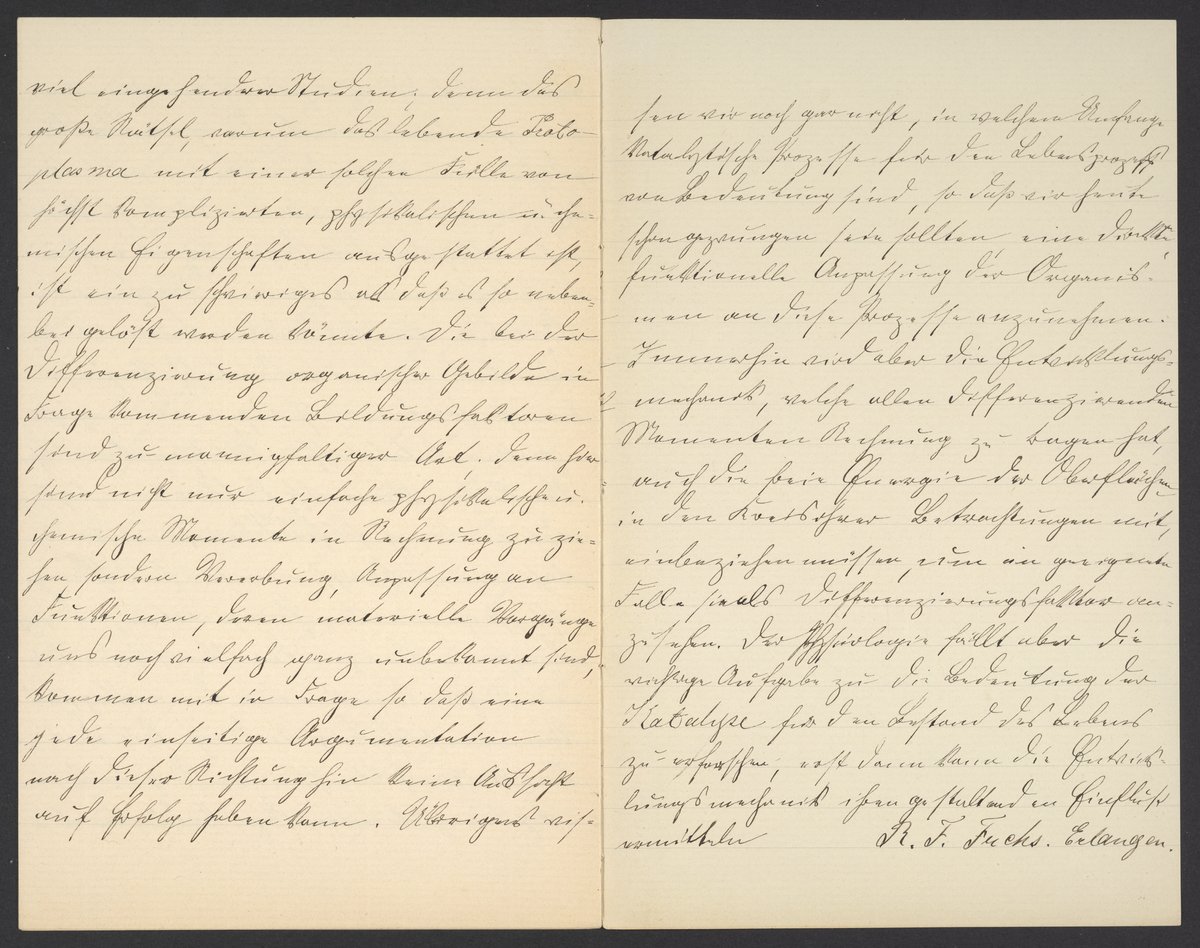 viel eingehenderer Studien, denn das
große Rätsel, warum das lebende Proto-
plasma mit einer solchen Fülle von
höchst komplizierten, physikalischen u. che-
mischen Eigenschaften ausgestattet ist,
ist ein zu schwieriges als daß es so neben-
bei gelöst werden könnte. Die bei der
Differenzierung organischer Gebilde in
Frage kommenden Bildungsfaktoren
sind zu mannigfaltiger Art. denn hier
sind nicht nur einfache physikalische u.
chemische Momente in Rechnung zu zie-
hen sondern Vererbung, Anpassung an
Funktionen, deren materielle Vorgänge
uns noch vielfach ganz unbekannt sind,
kommen mit in Frage so daß eine
jede einseitige Argumentation
nach dieser Richtung hin keine Aussicht
auf Erfolg haben kann. Übrigens wis-
sen wir noch gar nicht, in welchem Umfange
katalytische Prozesse für den Lebensprozess
von Bedeutung sind, so daß wir heute
schon gezwungen sein sollten eine direkte
funktionelle Anpassung der Organis-
men an diese Prozesse anzunehmen.
Immerhin wird aber die Entwicklungs-
mechanik, welche allen differenzierenden
Momenten Rechnung zu tragen hat,
auch die freie Energie der Oberflächen
in den Kreis ihrer Betrachtungen mit,
einbeziehen müssen, um im geeigneten
Falle sie als Differenzierungsfaktor an-
zusehen. Der Physiologie fällt aber die
wichtige Aufgabe zu die Bedeutung der
Katalyse für den Bestand des Lebens
zu erforschen, erst dann kann die Entwick-
lungsmechanik ihren gestaltenden Einfluss
ermitteln R. F. Fuchs. Erlangen.